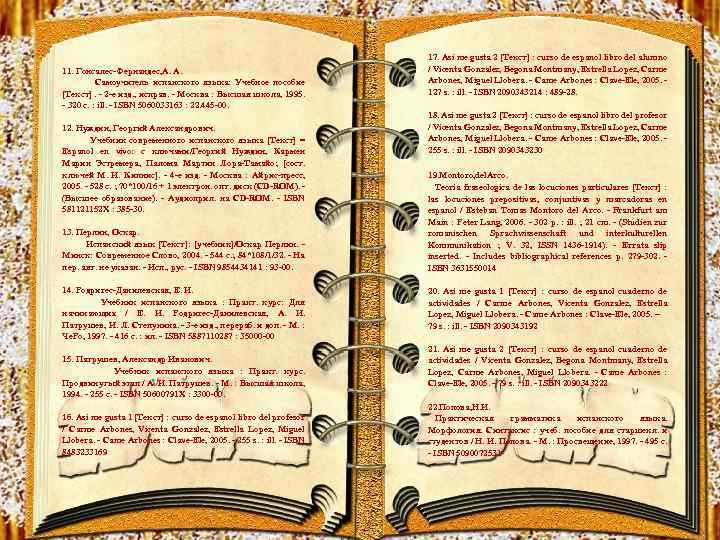 11. Гонсалес-Фернандес, А. А.
Самоучитель испанского языка: Учебное пособие
[Текст] . - 2-е изд., исправ. - Москва : Высшая школа, 1995.
- 320 с. : ill. - ISBN 5060033163 : 22445-00.
12. Нуждин, Георгий Александрович.
Учебник современного испанского языка [Текст] =
Espanol en vivo: с ключами/Георгий Нуждин, Кармен
Марин Эстремера, Палома Мартин Лора-Тамайо; [сост.
ключей М. И. Кипнис]. - 4-е изд. - Москва : Айрис-пресс,
2005. - 528 с. ; 70*100/16 + 1 электрон. опт. диск (CD-ROM). -
(Высшее образование). - Аудиоприл. на CD-ROM. - ISBN
581121152X : 385-30.
13. Перлин, Оскар.
Испанский язык [Текст]: [учебник]/Оскар Перлин. -
Минск: Современное Слово, 2004. - 544 с.; 84*108/1/32. - На
пер. авт. не указан. - Исп., рус. - ISBN 9854434141 : 93-00.
14. Родригес-Данилевская, Е. И.
Учебник испанского языка : Практ. курс: Для
начинающих / Е. И. Родригес-Данилевская, А. И.
Патрушев, И. Л. Степунина. - 3-е изд., перераб. и доп. - М. :
ЧеРо, 1997. - 416 с. : ил. - ISBN 5887110287 : 35000-00
15. Патрушев, Александр Иванович.
Учебник испанского языка : Практ. курс.
Продвинутый этап / А. И. Патрушев. - М. : Высшая школа,
1994. - 255 с. - ISBN 506007 91X : 3300-00.
16. Asi me gusta 1 [Текст] : curso de espanol libro del profesor
/ Carme Arbones, Vicenta Gonzalez, Estrella Lopez, Miguel
Llobera. - Came Arbones : Clave-Ele, 2005. - 255 s. : ill. - ISBN
8483233169
17. Asi me gusta 2 [Текст] : curso de espanol libro del alumno
/ Vicenta Gonzalez, Begona Montmany, Estrella Lopez, Carme
Arbones, Miguel Llobera. - Came Arbones : Clave-Ele, 2005. -
127 s. : ill. - ISBN 2090343214 : 489-28.
18. Asi me gusta 2 [Текст] : curso de espanol libro del profesor
/ Vicenta Gonzalez, Begona Montmany, Estrella Lopez, Carme
Arbones, Miguel Llobera. - Came Arbones : Clave-Ele, 2005. -
255 s. : ill. - ISBN 2090343230
19. Montoro, del Arco.
Teoria fraseologica de las locuciones particulares [Текст] :
las locuciones prepositivas, conjuntivas y marcadoras en
espanol / Esteban Tomas Montoro del Arco. - Frankfurt am
Main : Peter Lang, 2006. - 302 p. : ill. ; 21 cm. - (Studien zur
romanischen Sprachwissenschaft und interkulturellen
Kommunikation ; V. 32, ISSN 1436-1914). - Errata slip
inserted. - Includes bibliographical references p. 279-302. -
ISBN 3631550014
20. Asi me gusta 1 [Текст] : curso de espanol cuaderno de
actividades / Carme Arbones, Vicenta Gonzalez, Estrella
Lopez, Miguel Llobera. - Came Arbones : Clave-Ele, 2005. –
79 s. : ill. - ISBN 2090343192
21. Asi me gusta 2 [Текст] : curso de espanol cuaderno de
actividades / Vicenta Gonzalez, Begona Montmany, Estrella
Lopez, Carme Arbones, Miguel Llobera. - Came Arbones :
Clave-Ele, 2005. - 79 s. : ill. - ISBN 2090343222
22. Попова, Н.И.
Практическая грамматика испанского языка.
Морфология. Синтаксис : учеб. пособие для старш. кл. и
студентов / Н. И. Попова. - М. : Просвещение, 1997. - 495 с.
- ISBN 5090072531